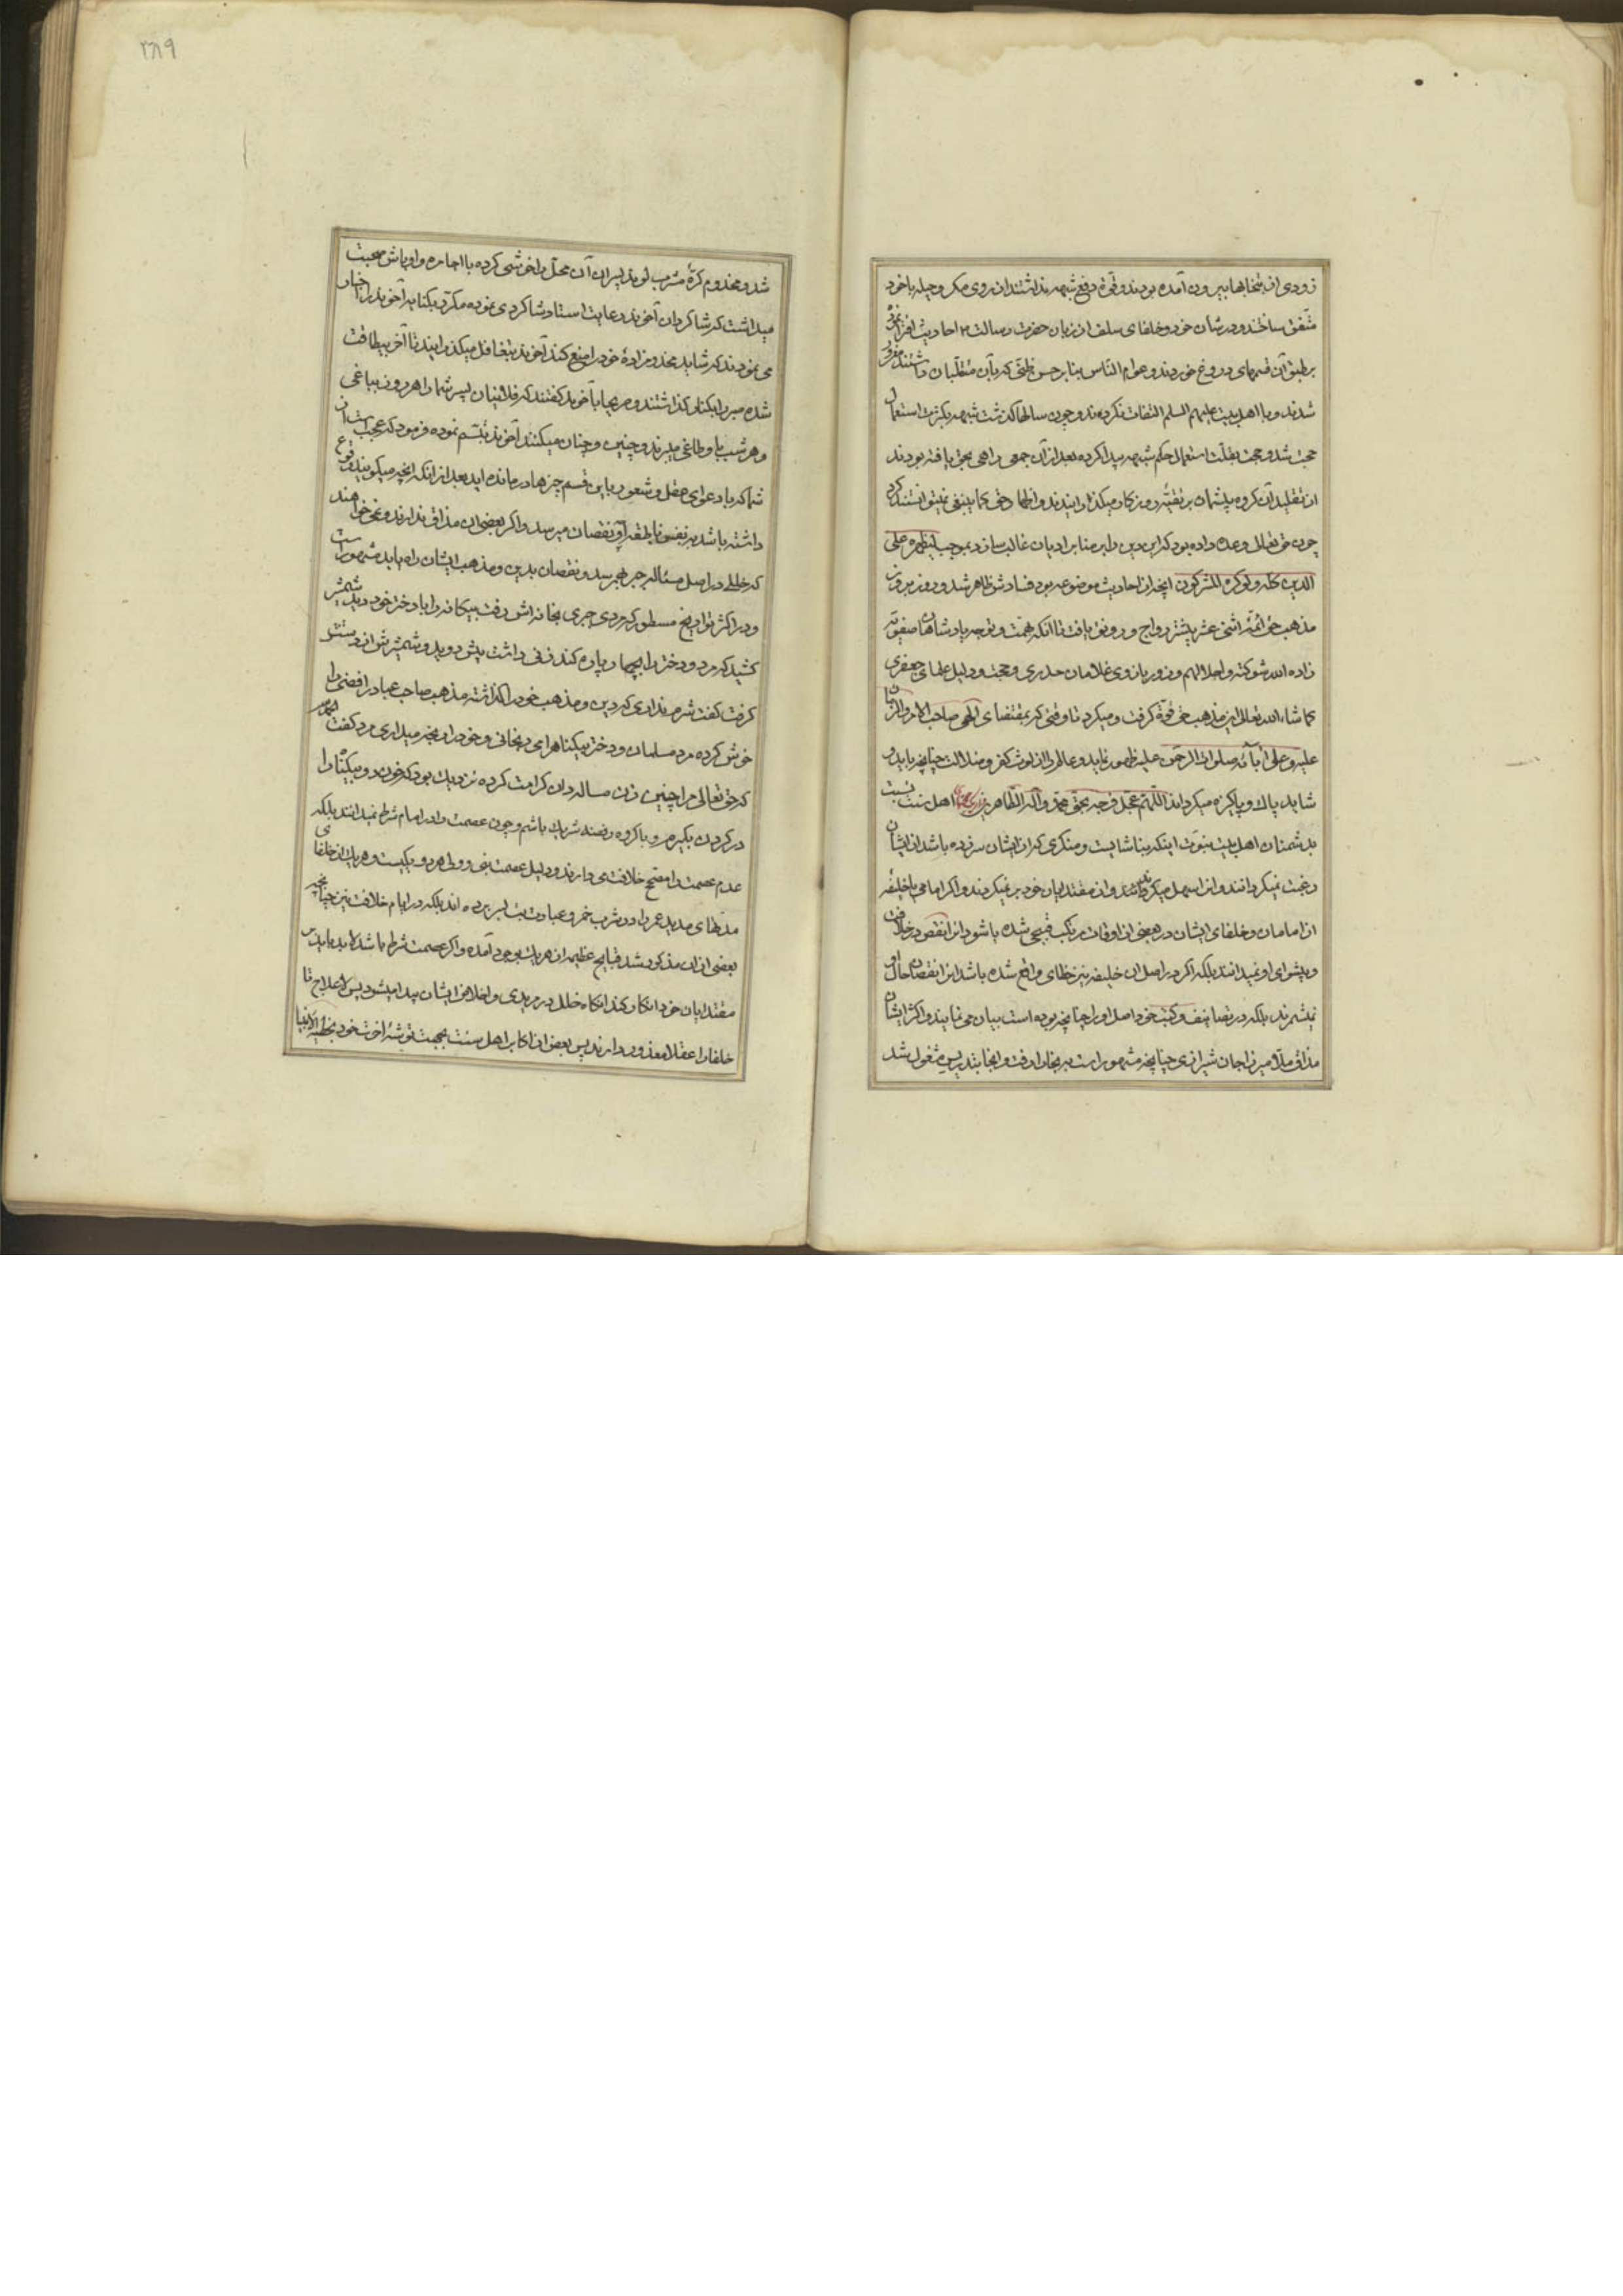 زودی از بتخانها بیرون آمده بودند و قوّة دفع شبهه نداشتند از روی مکر و حیله با خود
متّفق ساختند و در شان خود و خلفای سلف از زبان حضرت رسالت ص احادیث افترا نمود
بر طبق آن قسمهای دروغ خوردند و عوام النّاس بنا بر حسن ظنّی که بآن متقلّبان داشتند مغرور
شدند و با اهل بیت علیهم السلم التفات نکردند و چون سالها گذشت شبهه بکثرت استعمال
حجّت شد و حجت بقلّت استعمال حکم شبهه پیدا کرده بعد از آن جمعی راهی بحق یافته بودند
از تقلید آن کروه پلیشمان بر تقیّه روزکار میکذرانیدند و اظهار حق کما ینبغی نمیتوانستند کرد
چون حق تعالی وعده داده بود که این دین را بر سایر ادیان غالب سازد بموجب لیظهره علی
الدین کله ولو کره المشرکون آنچه از احادیث موضوعه بود فسادش ظاهر شد و روز بروز
مذهب حق ائمّه اثنی عشر بیشتر رواج و رونق یافت تا آنکه بهمّت و توجه پادشاهان صفویّه
زاده الله شوکته و اجلالهم و زور بازوی غلامان حیدری و حجت و دلیل علمای جعفری
کما شاء الله تعالی این مذهب حق قوّة کرفت و میکرد تا وقتی که بمقتضای الهی صاحب الامر و الزمان
علیه و علی آبائه صلوات الرحمن علیه ظهور نماید و عالم را از لوث کفر و ضلالت چنانچه باید و
شاید پاک و پاکیزه میکرداند اللّهمّ عجّل فرجه بحق محمد و آله الطّاهرین اهل سنت نسبت
بدشمنان اهل بیت نبوّت اینکه بناشایست و منکری که از ایشان سر زده باشد از ایشان
رغبت نمیکردانند و انرا سهل میکردانند و از مقتدایان خود بر نمیکردند و اکر امامی یا خلیفه
از امامان و خلفای ایشان در بعضی از اوقات مرتکب قبیحی شده باشود انرا نقص در خلافت
و پیشوای او نمیدانند بلکه اکر در اصل ان خلیفه نیز خطای واقع شده باشد انرا نقصان حال او
نمیشمرند بلکه در تصانیف و کتب خود اصل او را چنانچه بوده است بیان می نمایند و اکثر ایشان
مذاق ملّا میرزا جان شیرازی چنانچه مشهور است به بخارا رفت و انجا بتدریس مشغول شد
٣٨٩
شد و مخدوم کرّه مشرب لوند پسران آن محل را خوشی کرده با اجامره و اوباش صحبت
میداشت که شاکردان آخوند رعایت استاد شاکردی نموده مکرّر بکنایه آخوند را اخبار
می نمودند که شاید مخدوم زادهٔ خود را منع کند آخوند بتغافل میکذرانیدند تا آخر بیطاقت
شده صبر را بکنار کذاشتند و صریحا با آخوند کفتند که فلانیان پسر شما را هر روز بباغی
و هر شب باوطاغی میبرند و چنین و چنان میکنند آخوند تبسّم نموده فرمود که عجب است از
شما که با دعوای عقل و شعور باین قسم چیزها در مانده اید بعد از انکه انچه میکویند وقوع
داشته باشد به نفس ناطقه او نقصان میرسد و اکر بعضی ان مذاق ندارند و نمی خواهند
که خللی در اصل مسئاله جبر بهم رسد و نقصان بدین و مذهب ایشان راه یابد مشهور است
و در اکثر تواریخ مسطور که مردی جبری بخانه اش رفت بیکانه را با دختر خود دید شمشیر
کشید که مرد و دختر را بچهار پاره کند زنی داشت پیش دوید و شمشیرش از دستش
کرفت کفت شرم نداری که دین و مذهب خود را کذاشته مذهب صاحب عباد رافضی را
خوش کرده مرد مسلمان و دختر بیکناهرا می رنجانی و خود را رنجه میداری مرد کفت الحمد
که حق تعالی مرا چنین زن مساله دان کرامت کرده نزدیک بود که خون دو بیکناه را
در کردن بکیرم و با کروه رفضه شریک باشم و چون عصمت را در امام شرط نمیدانند بلکه
عدم عصمت را مصحّح خلافت می دارند و دلیل عصمت نبی و ولی هر دو یکیست و هر یک از خلفای
مدتهای مدید عمر را در شرب خمر و عبادت بت بسر برده اند بلکه در ایام خلافت نیز چنانچه
بعضی از ان مذکور شد قبایح عظیمه از هر یک بوجود آمده و اکر عصمت شرط باشد باید از
مقتدایان خود انکار کند انکاه خلل در مریدی و اخلاص ایشان پیدا میشود پس لاعلاج تا
خلفا را عقلا معذور دارند پس بعضی از اکابر اهل سنت بجهت توشهٔ اخرت خود بخطیه الانبیا